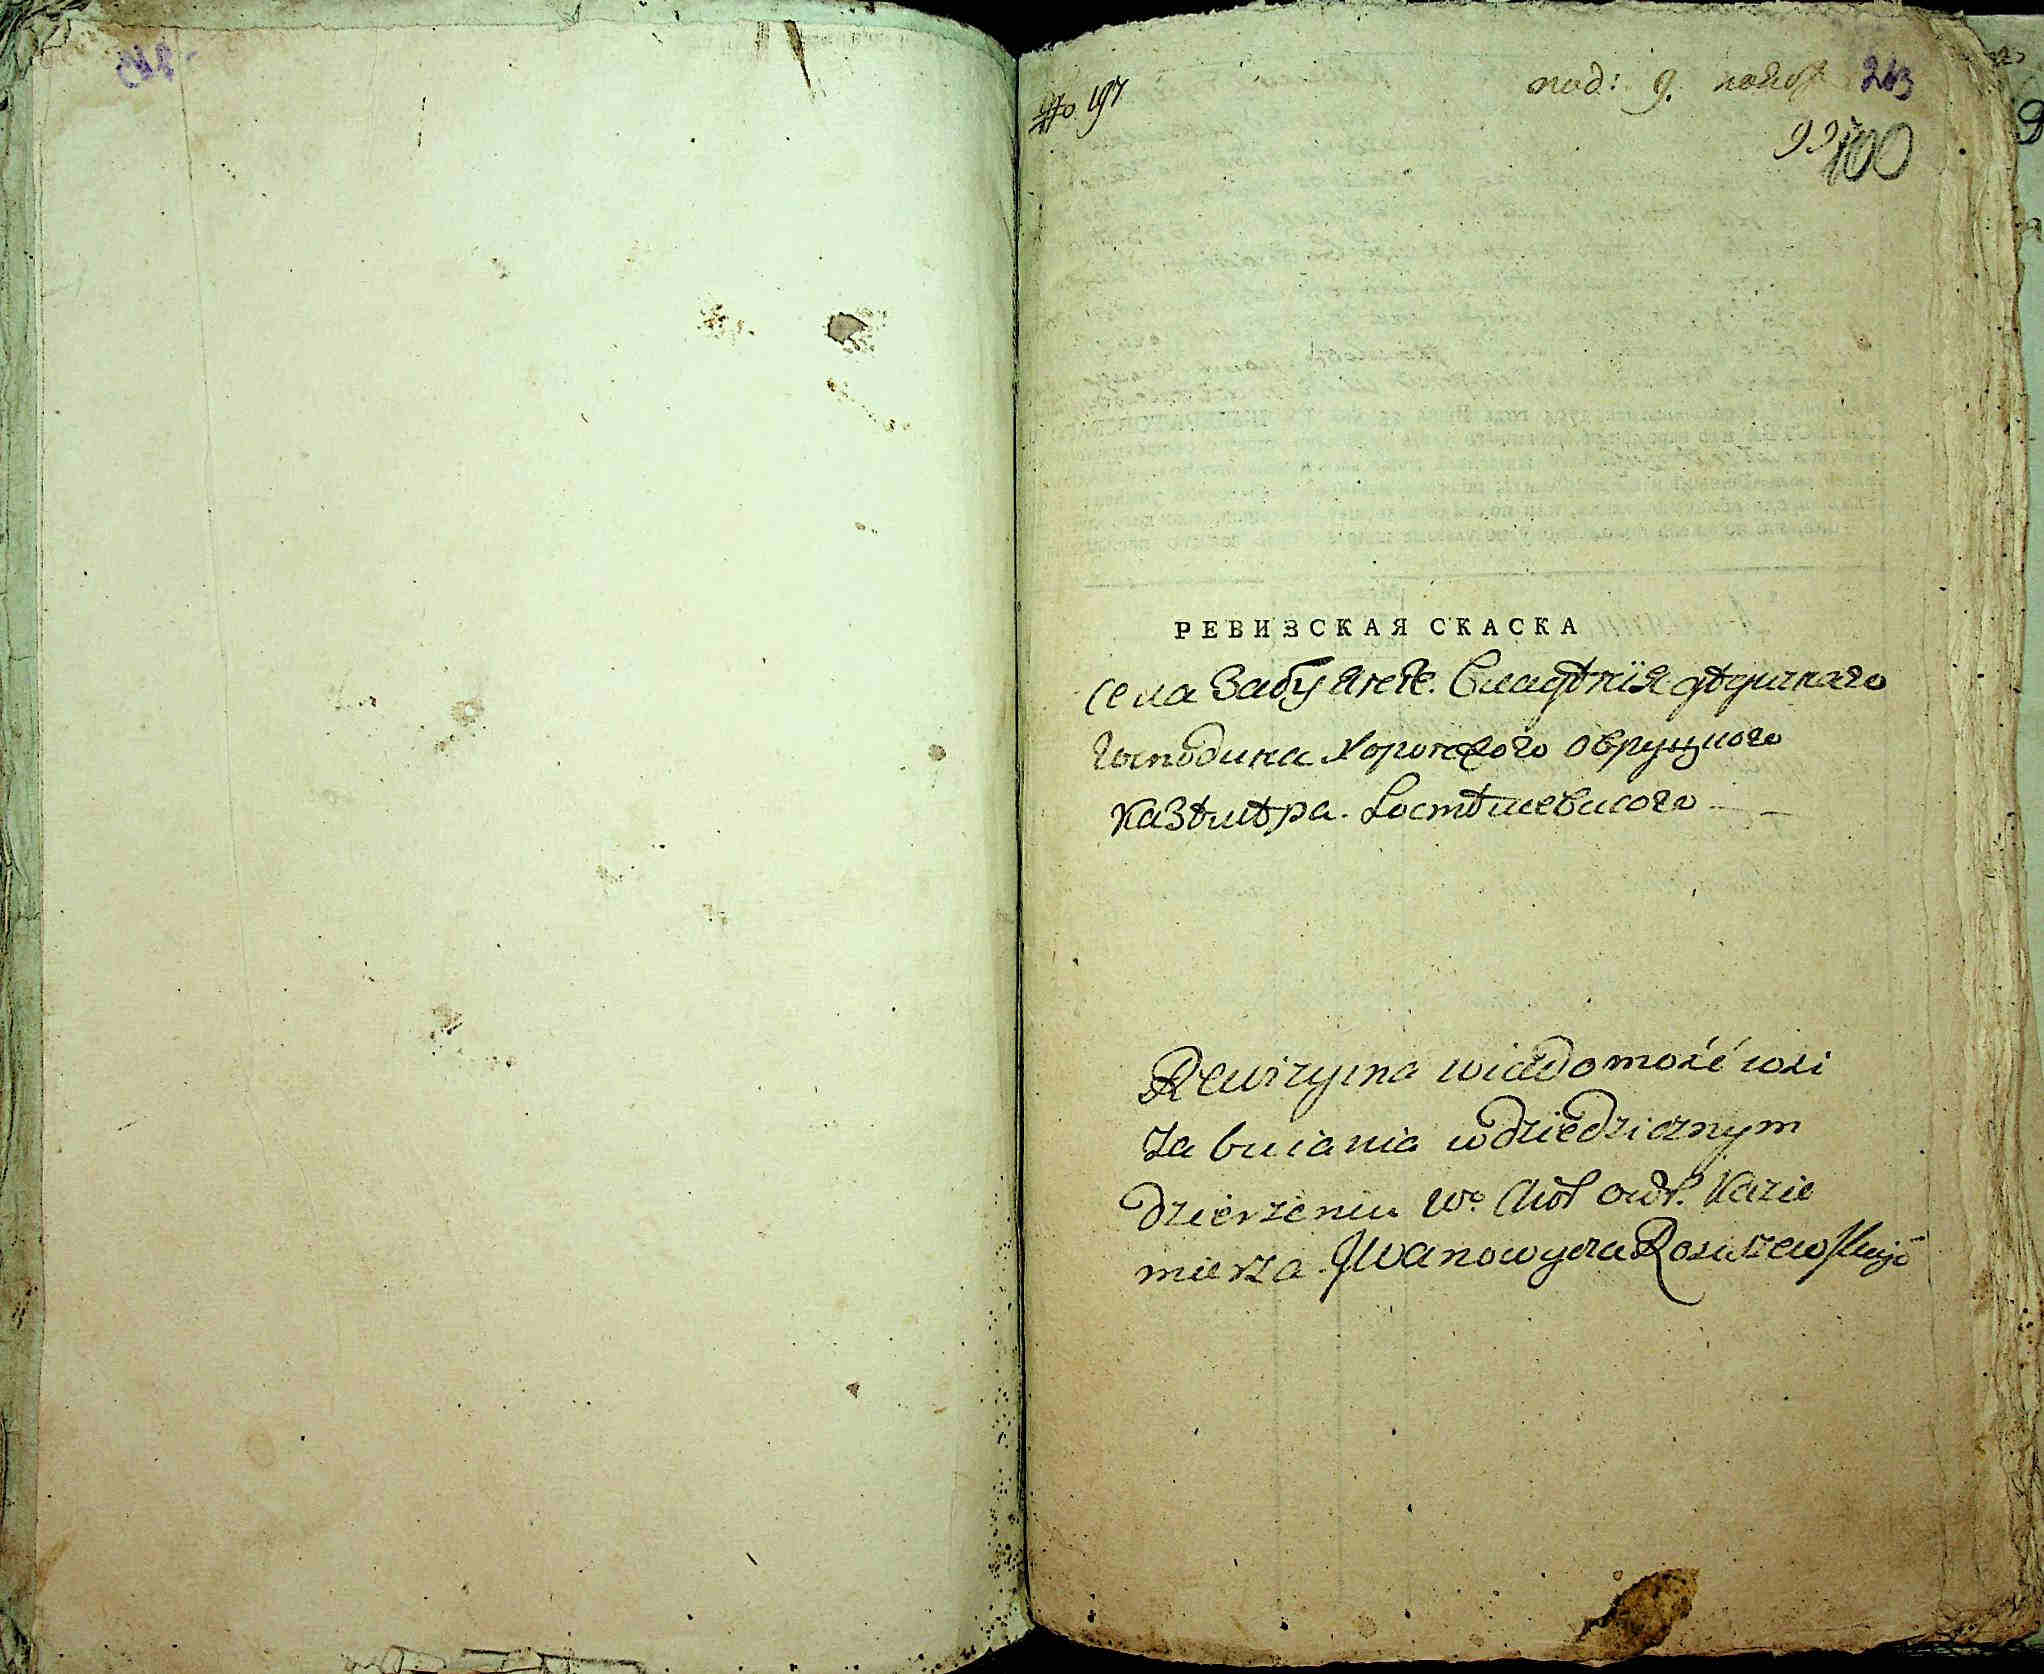 № 197
под: 9. нояб 213
99 100
РЕВИЗСКАЯ СКАСКА
села Забуяне. владѣнїя дѣдичнаго
господина хоронжого овруцкого
казѣмѣра. Ростѣшевского
Rewizyina wiadomość wsi
Zabuiania w dziedzicznym
dzierzeniu Wo Chor owr. Kazie
mierza Jwanowycza Rosciszewskiego